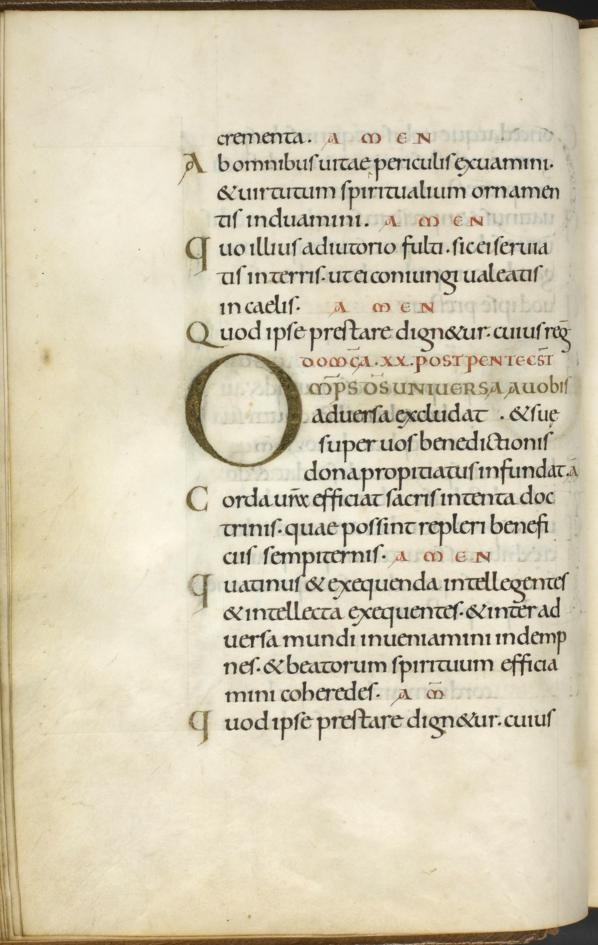 crementa. A M E N
Ab omnibus uitae periculis exuamini.
& uirtutum spiritualium ornamen
tis induamini. A M E N
Quo illius adiutorio fulti. sic ei seruia
tis in terris. ut ei coniungi ualeatis
in caelis. A M E N
Quod ipse prestare dign&ur. cuius reḡ
DOM̄CA. XX. POST PENTECST̄
OMP̄S D̄S UNIUERSA A UOBIS
aduersa excludat. & suę
super uos benedictionis
dona propitiatus infundat. ā
Corda ur̄a efficiat sacris intenta doc
trinis. quae possint repleri benefi
ciis sempiternis. A M E N
Quatinus & exequenda intellegentes
& intellecta exequentes. & inter ad
uersa mundi inueniamini indemp
nes. & beatorum spirituum efficia
mini coheredes. A M̄
Quod ipse prestare dign&ur. cuius